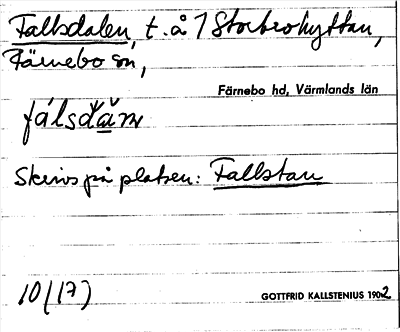 Fallsdalen, t. å 7 Storbrohyttan,
Färnebo sn,
Färnebo hd, Värmlands län
Skrivs på platsen: Fallstan
10 (17)
GOTTFRID KALLSTENIUS 1902